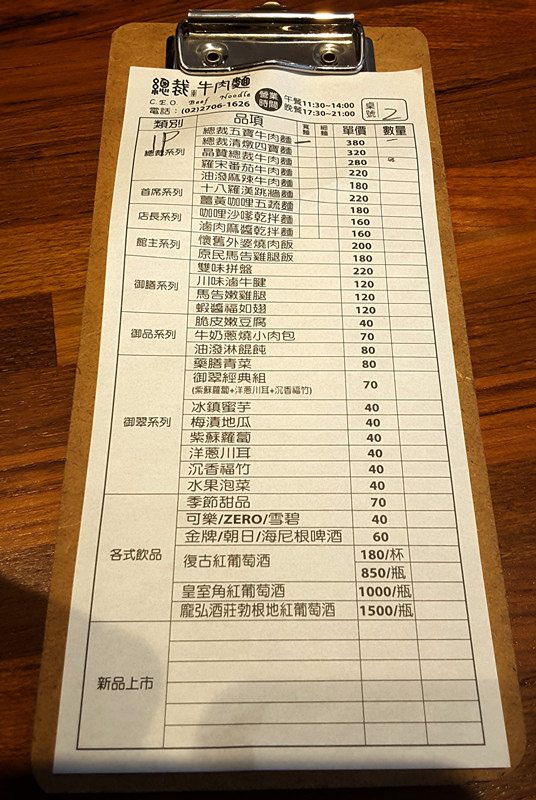 總裁牛肉麵
C.E.O. Beef Noodle
電話：(02)2706-1626
營業時間 午餐11:30~14:00 晚餐17:30~21:00
桌號 2
1P
類別 品項 寬麵 細麵 單價 數量
總裁系列
總裁五寶牛肉麵 380
總裁清燉四寶麵 320
晶贊總裁牛肉麵 280
羅宋番茄牛肉麵 220
油潑麻辣牛肉麵 180
首席系列
十八羅漢跳牆麵 220
薑黃咖哩五蔬麵 180
店長系列
咖哩沙嗲乾拌麵 160
滷肉麻醬乾拌麵 160
館主系列
懷舊外婆燒肉飯 200
原民馬告雞腿飯 180
御膳系列
雙味拼盤 220
川味滷牛腱 120
馬告嫩雞腿 120
蝦醬福如翅 120
御品系列
脆皮嫩豆腐 40
牛奶蔥燒小肉包 70
油潑淋餛飩 80
御翠系列
藥膳青菜 80
御翠經典組 70
(紫蘇蘿蔔+洋蔥川耳+沉香福竹)
冰鎮蜜芋 40
梅漬地瓜 40
紫蘇蘿蔔 40
洋蔥川耳 40
沉香福竹 40
水果泡菜 40
各式飲品
季節甜品 70
可樂/ZERO/雪碧 40
金牌/朝日/海尼根啤酒 60
復古紅葡萄酒 180/杯
850/瓶
皇室角紅葡萄酒 1000/瓶
龐弘酒莊勃根地紅葡萄酒 1500/瓶
新品上市